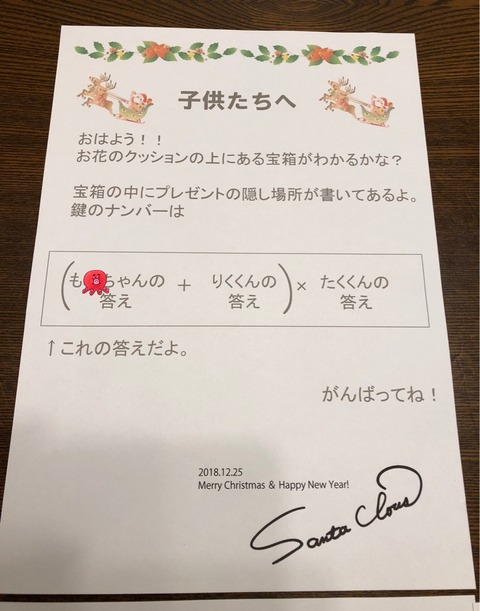 子供たちへ
おはよう！！
お花のクッションの上にある宝箱がわかるかな？
宝箱の中にプレゼントの隠し場所が書いてあるよ。
鍵のナンバーは
(も ちゃんの 答え + りくくんの 答え) × たくくんの 答え
↑これの答えだよ。
がんばってね！
2018.12.25
Merry Christmas & Happy New Year!
Santa Claus